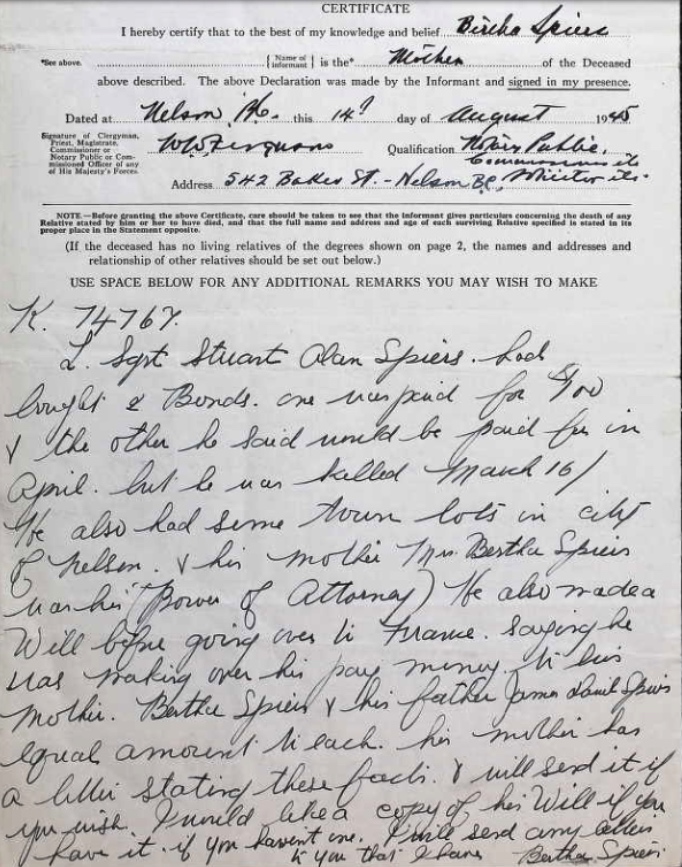 CERTIFICATE
I hereby certify that to the best of my knowledge and belief Bertha Spiers
*See above. { Name of informant } is the* Mother of the Deceased
above described. The above Declaration was made by the Informant and signed in my presence.
Dated at Nelson, B.C. this 14 day of August 1945
Signature of Clergyman,
Priest, Magistrate,
Commissioner or
Notary Public or Com-
missioned Officer of any
of His Majesty's Forces.
Qualification Notary Public,
Commissioner etc
Address 542 Baker St. - Nelson BC, Solicitor etc.
NOTE.—Before granting the above Certificate, care should be taken to see that the informant gives particulars concerning the death of any
Relative stated by him or her to have died, and that the full name and address and age of each surviving Relative specified is stated in its
proper place in the Statement opposite.
(If the deceased has no living relatives of the degrees shown on page 2, the names and addresses and
relationship of other relatives should be set out below.)
USE SPACE BELOW FOR ANY ADDITIONAL REMARKS YOU MAY WISH TO MAKE
K. 74767.
L. Sgrt Stuart Alan Spiers. had
bought 2 Bonds. one was paid for $100
& the other he said would be paid for in
April. but he was killed March 16/
He also had some town lots in city
of Nelson. & his mother Mrs. Bertha Spiers
was his (Power of Attorney) He also made a
Will before going over to France. saying he
was making over his pay money. to his
Mother. Bertha Spiers & his father James Spiers
equal amount to each. his mother has
a letter stating these facts. & will send it if
you wish. I would like a copy of his Will if you
have it. if you havent one. I will send any letters
to you that I have Bertha Spiers